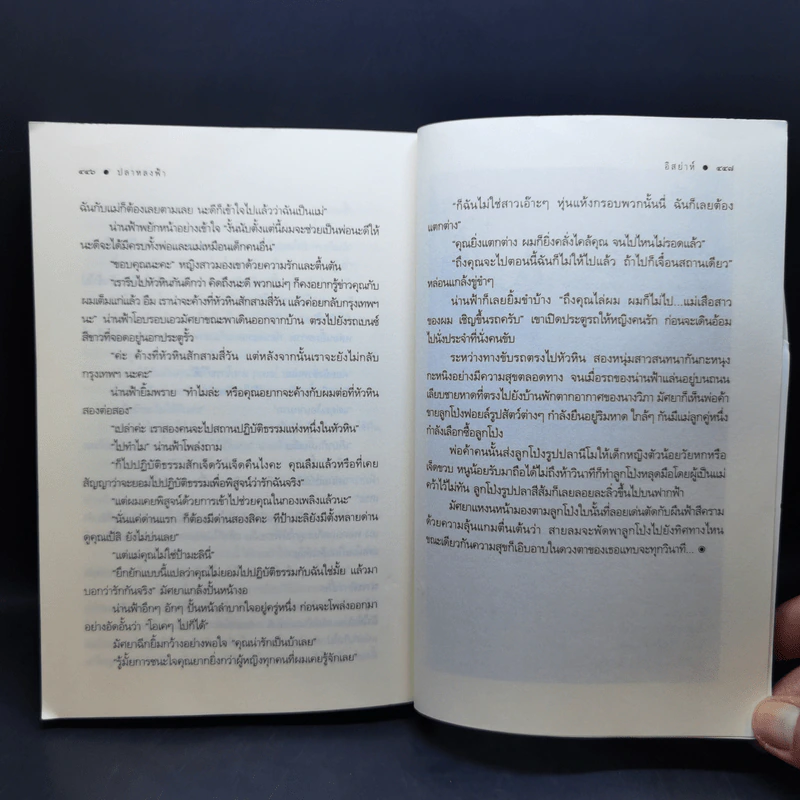 ๔๔๖ ● ปลาหลงฟ้า
ฉันกับแม่ก็ต้องเลยตามเลย นะดีก็เข้าใจไปแล้วว่าฉันเป็นแม่”
น่านฟ้าพยักหน้าอย่างเข้าใจ “งั้นนับตั้งแต่นี้ผมจะช่วยเป็นพ่อนะดีให้
นะดีจะได้มีครบทั้งพ่อและแม่เหมือนเด็กคนอื่น”
“ขอบคุณนะคะ” หญิงสาวมองเขาด้วยความรักและตื้นตัน
“เรารีบไปหัวหินกันดีกว่า คิดถึงนะดี พวกแม่ๆ ก็คงอยากรู้ข่าวคุณกับ
ผมเต็มแก่แล้ว อืม เราน่าจะค้างที่หัวหินสักสามสี่วัน แล้วค่อยกลับกรุงเทพฯ
นะ” น่านฟ้าโอบรอบเอวมัศยาขณะพาเดินออกจากบ้าน ตรงไปยังรถเบนซ์
สีขาวที่จอดอยู่นอกประตูรั้ว
“ค่ะ ค้างที่หัวหินสักสามสี่วัน แต่หลังจากนั้นเราจะยังไม่กลับ
กรุงเทพฯ นะคะ”
น่านฟ้ายิ้มพราย “ทำไมล่ะ หรือคุณอยากจะค้างกับผมต่อที่หัวหิน
สองต่อสอง”
“เปล่าค่ะ เราสองคนจะไปสถานปฏิบัติธรรมแห่งหนึ่งในหัวหิน”
“ไปทำไม” น่านฟ้าโพล่งถาม
“ก็ไปปฏิบัติธรรมสักเจ็ดวันเจ็ดคืนไงคะ คุณลืมแล้วหรือที่เคย
สัญญาว่าจะยอมไปปฏิบัติธรรมเพื่อพิสูจน์ว่ารักฉันจริง”
“แต่ผมเคยพิสูจน์ด้วยการเข้าไปช่วยคุณในกองเพลิงแล้วนะ”
“นั่นแค่ด่านแรก ก็ต้องมีด่านสองสิคะ ทีป้ามะลิยังมีตั้งหลายด่าน
ดูคุณเปิลิ ยังไม่บ่นเลย”
“แต่แม่คุณไม่ใช่ป้ามะลินี่”
“ยึกยักแบบนี้แปลว่าคุณไม่ยอมไปปฏิบัติธรรมกับฉันใช่มั้ย แล้วมา
บอกว่ารักกันจริง” มัศยาแกล้งปั้นหน้างอ
น่านฟ้าอึกๆ อักๆ ปั้นหน้าลำบากใจอยู่ครู่หนึ่ง ก่อนจะโพล่งออกมา
อย่างอัดอั้นว่า “โอเคๆ ไปก็ได้”
มัศยาฉีกยิ้มกว้างอย่างพอใจ “คุณน่ารักเป็นบ้าเลย”
“รู้มั้ยการชนะใจคุณยากยิ่งกว่าผู้หญิงทุกคนที่ผมเคยรู้จักเลย”
อิสย่าห์ ● ๔๔๗
“ก็ฉันไม่ใช่สาวเอ๊าะๆ หุ่นแห้งกรอบพวกนั้นนี่ ฉันก็เลยต้อง
แตกต่าง”
“คุณยิ่งแตกต่าง ผมก็ยิ่งคลั่งไคล้คุณ จนไปไหนไม่รอดแล้ว”
“ถึงคุณจะไปตอนนี้ฉันก็ไม่ให้ไปแล้ว ถ้าไปก็เจื๋อนสถานเดียว”
หล่อนแกล้งขู่ขำๆ
น่านฟ้าก็เลยยิ้มขำบ้าง “ถึงคุณไล่ผม ผมก็ไม่ไป...แม่เสือสาว
ของผม เชิญขึ้นรถครับ” เขาเปิดประตูรถให้หญิงคนรัก ก่อนจะเดินอ้อม
ไปนั่งประจำที่นั่งคนขับ
ระหว่างทางขับรถตรงไปหัวหิน สองหนุ่มสาวสนทนากันกะหนุง
กะหนิงอย่างมีความสุขตลอดทาง จนเมื่อรถของน่านฟ้าแล่นอยู่บนถนน
เลียบชายหาดที่ตรงไปยังบ้านพักตากอากาศของนางวิภา มัศยาก็เห็นพ่อค้า
ขายลูกโป่งฟอยล์รูปสัตว์ต่างๆ กำลังยืนอยู่ริมหาด ใกล้ๆ กันมีแม่ลูกคู่หนึ่ง
กำลังเลือกซื้อลูกโป่ง
พ่อค้าคนนั้นส่งลูกโป่งรูปปลานีโมให้เด็กหญิงตัวน้อยวัยหกหรือ
เจ็ดขวบ หนูน้อยรับมาถือได้ไม่ถึงห้าวินาทีก็ทำลูกโป่งหลุดมือโดยผู้เป็นแม่
คว้าไว้ไม่ทัน ลูกโป่งรูปปลาสีส้มก็เลยลอยละลิ่วขึ้นไปบนฟากฟ้า
มัศยาแหงนหน้ามองตามลูกโป่งใบนั้นที่ลอยเด่นตัดกับผืนฟ้าสีคราม
ด้วยความลุ้นแกมตื่นเต้นว่า สายลมจะพัดพาลูกโป่งไปยังทิศทางไหน
ขณะเดียวกันความสุขก็เอิบอาบในดวงตาของเธอแทบจะทุกวินาที... ◉